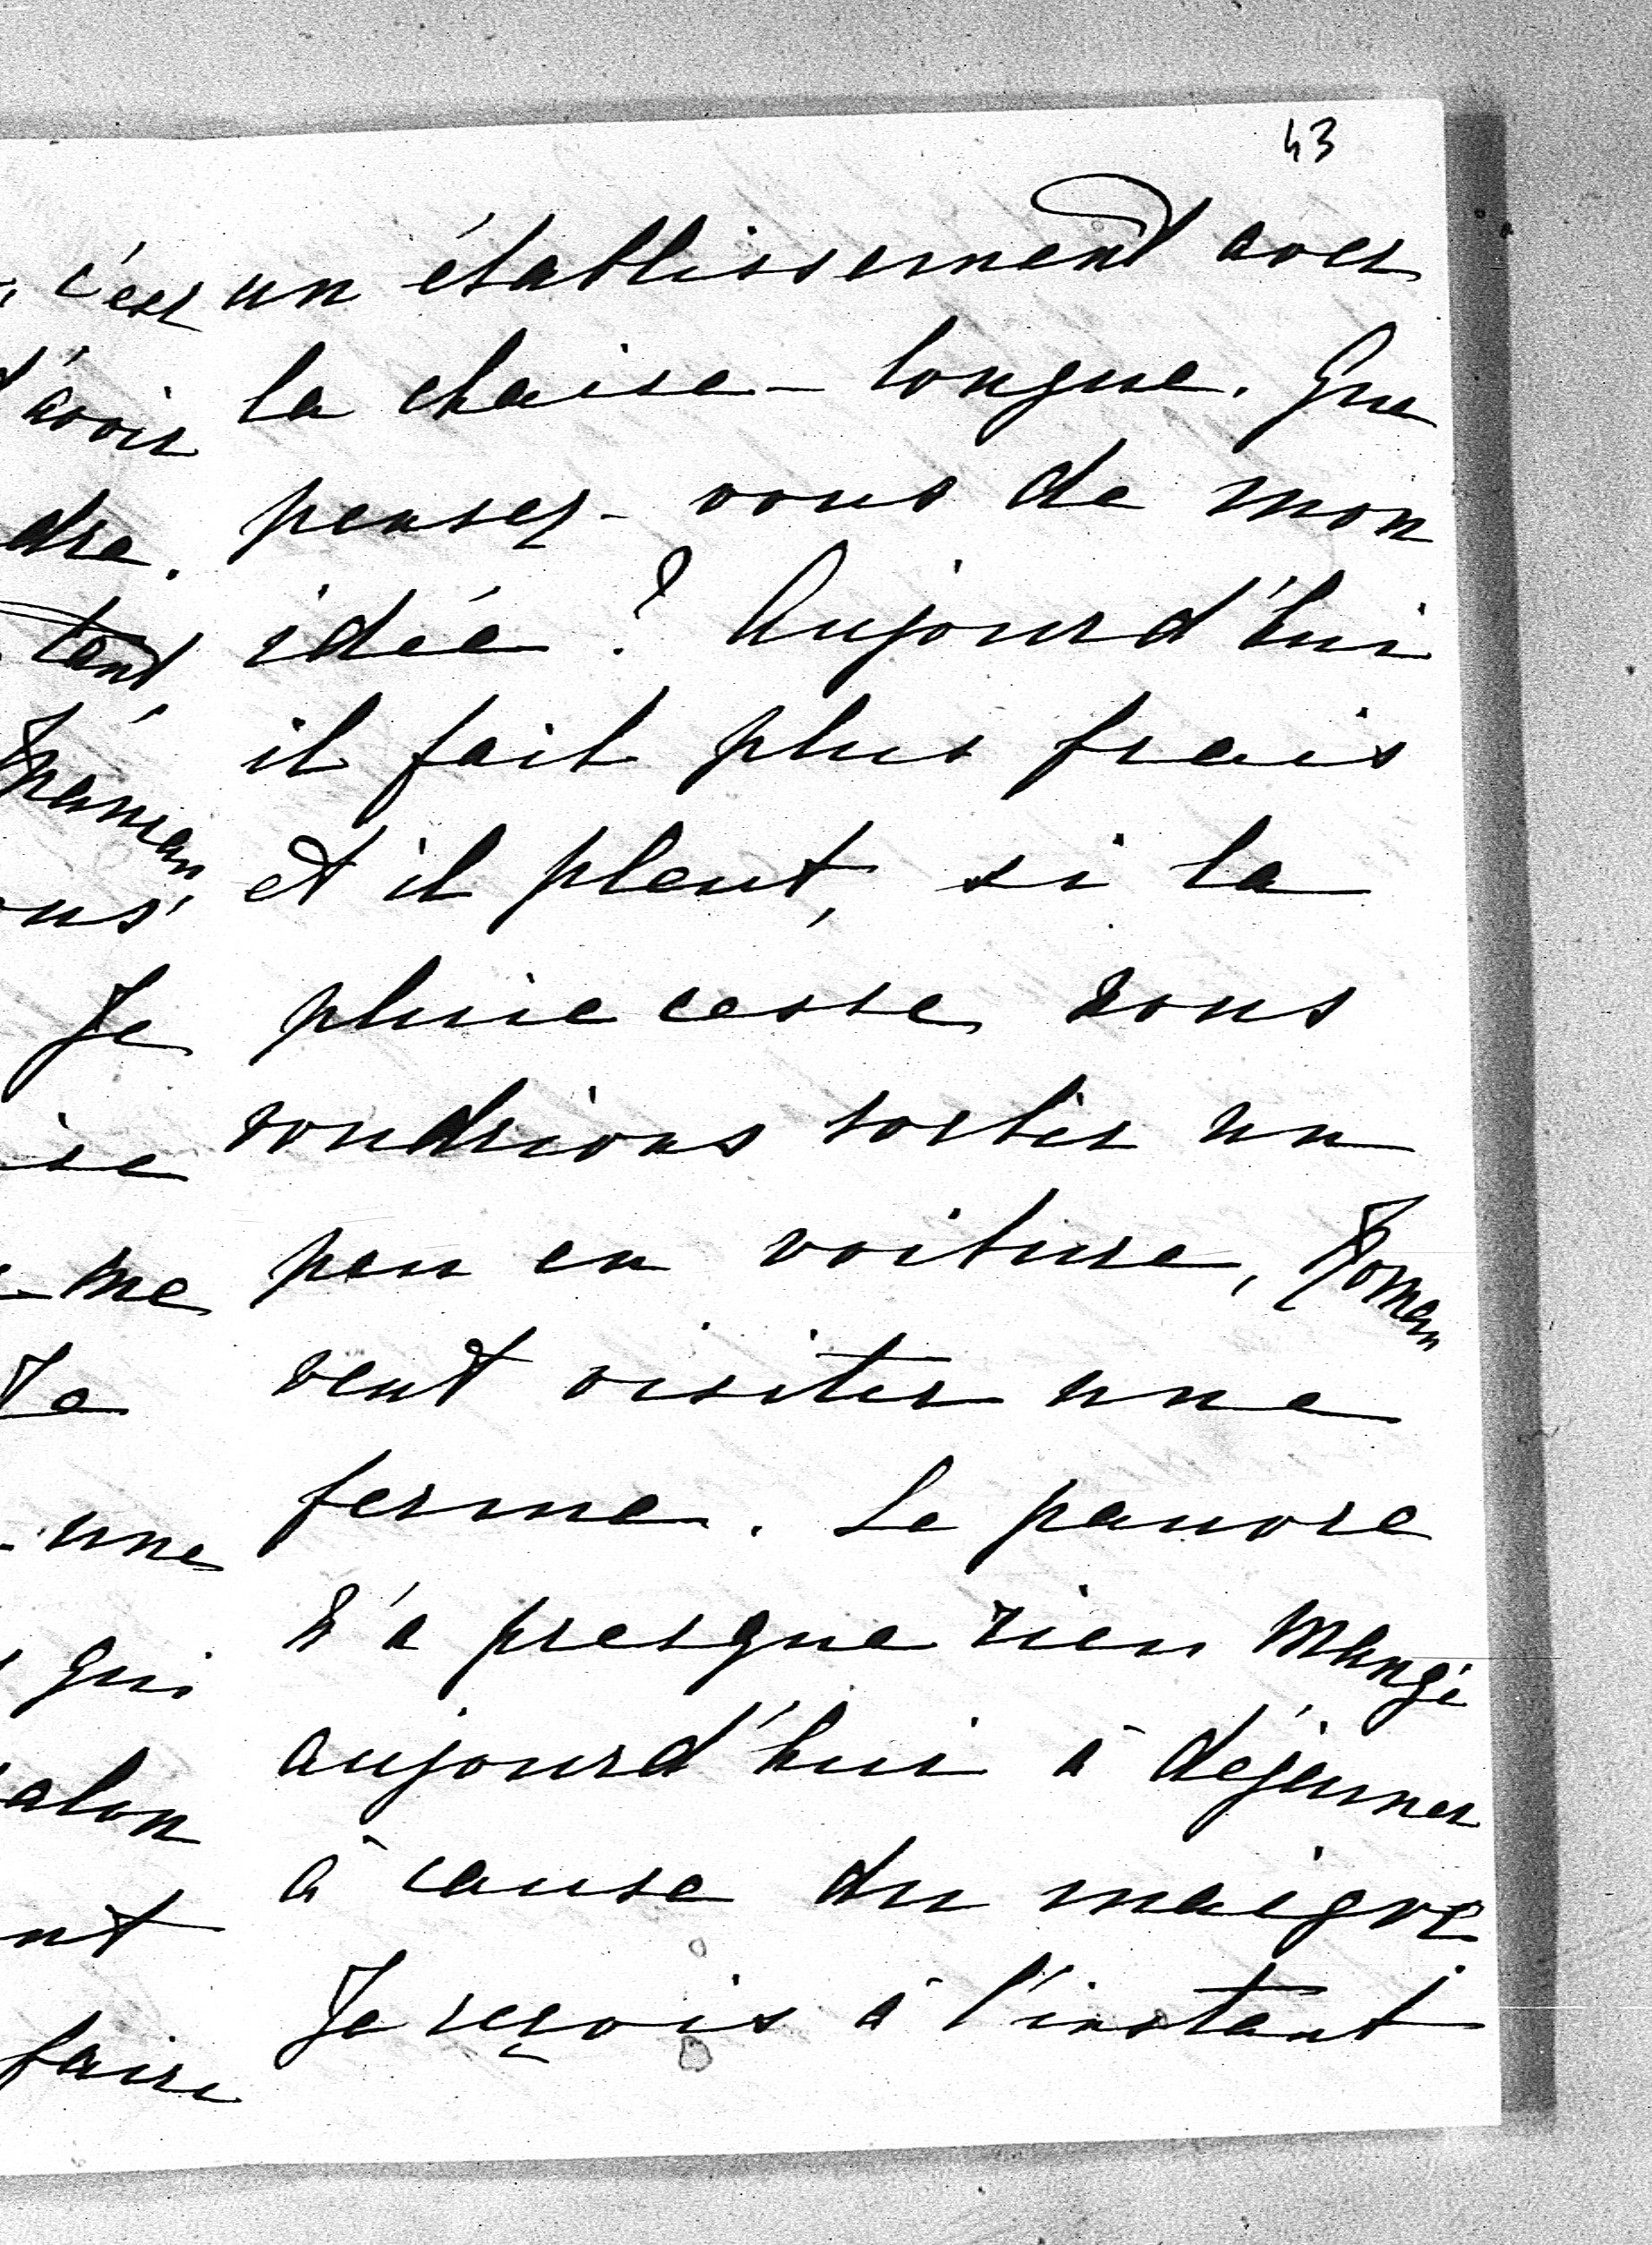 43
un établissement avec
la chaise-longue. Que
pensez-vous de mon
idée? Aujourd'hui
il fait plus frais
et il pleut, si la
pluie cesse nous
voudrions sortir un
peu en voiture, Roman
veut visiter une
ferme. Le pauvre
n'a presque rien mangé
aujourd'hui à déjeuner
à cause du maigre
Je reçois à l'instant
c'est
d'avoir
dre.
tent
maman,
ous
Je
ise
me
Je
une
qui
alon
nt
faire